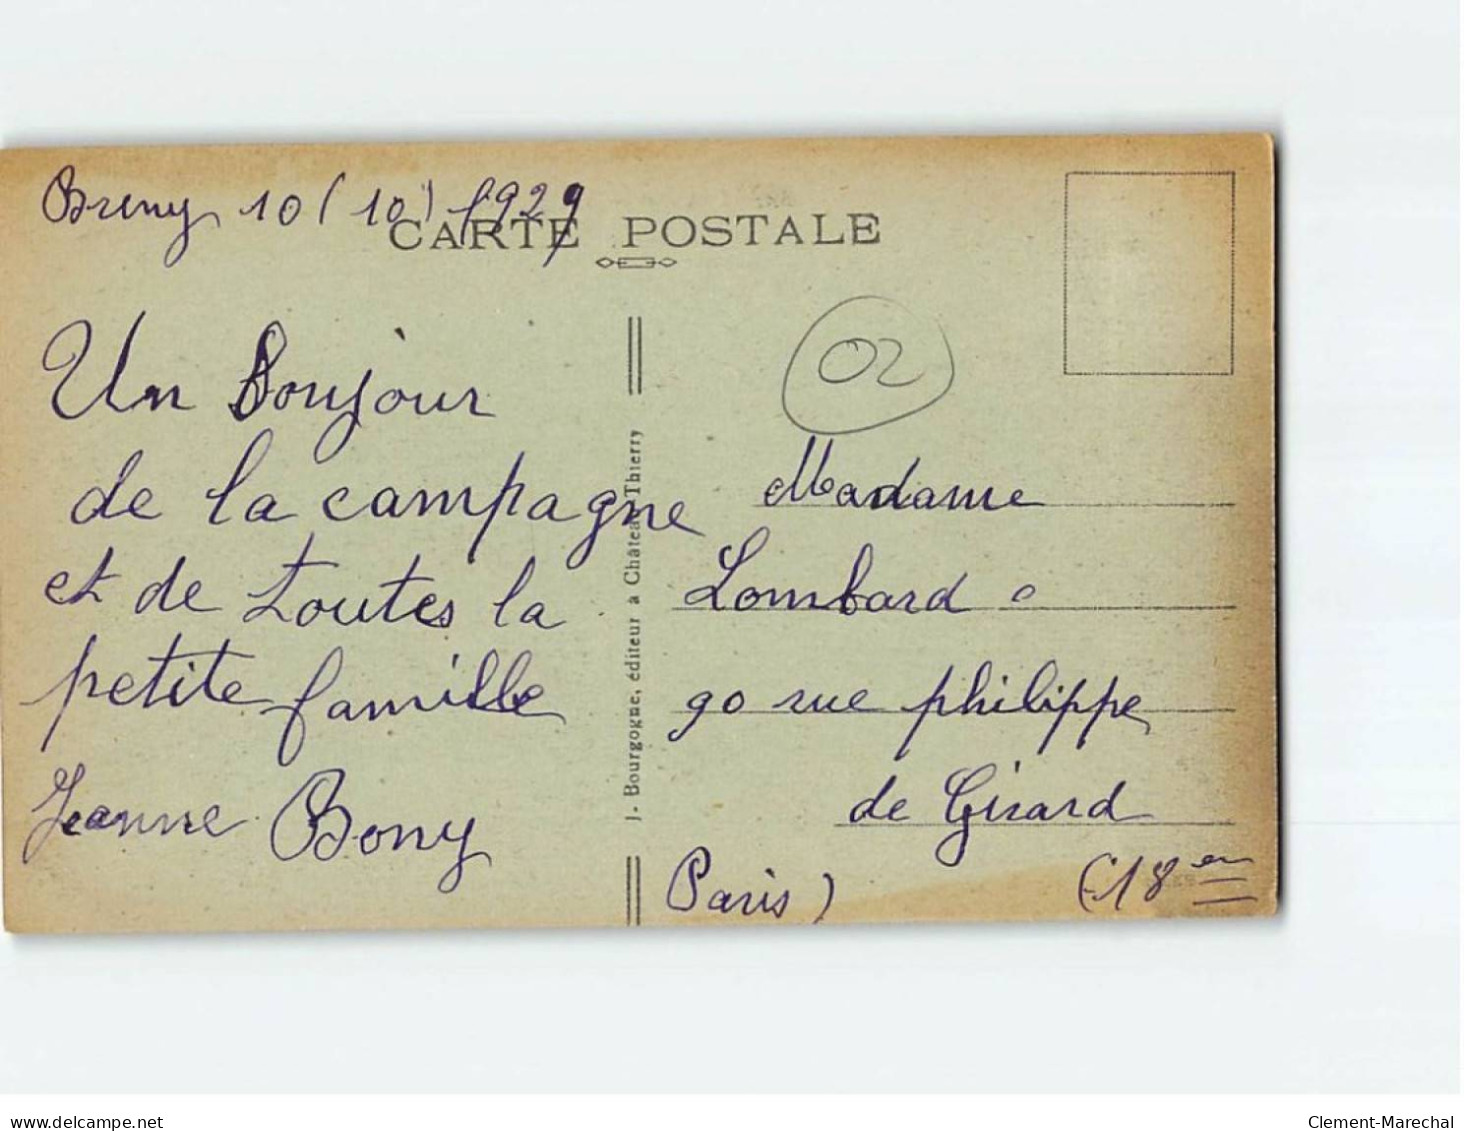 Breny 10 (10) 1929
CARTE POSTALE
Un Bonjour
de la campagne
et de toutes la
petite famille
Jeanne Bony
J. Bourgogne, éditeur à Château-Thierry
02
Madame
Lombard
90 rue philippe
de Girard
Paris) (18 em
delcampe.net
Clement-Marechal